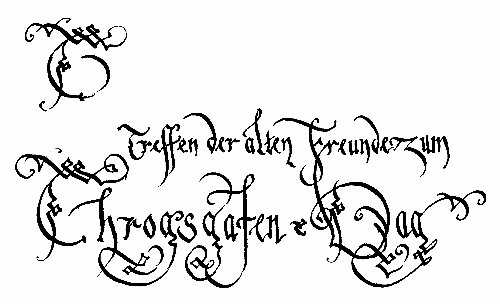 T
Treffen der alten Freunde zum
Throgsgafen Tag